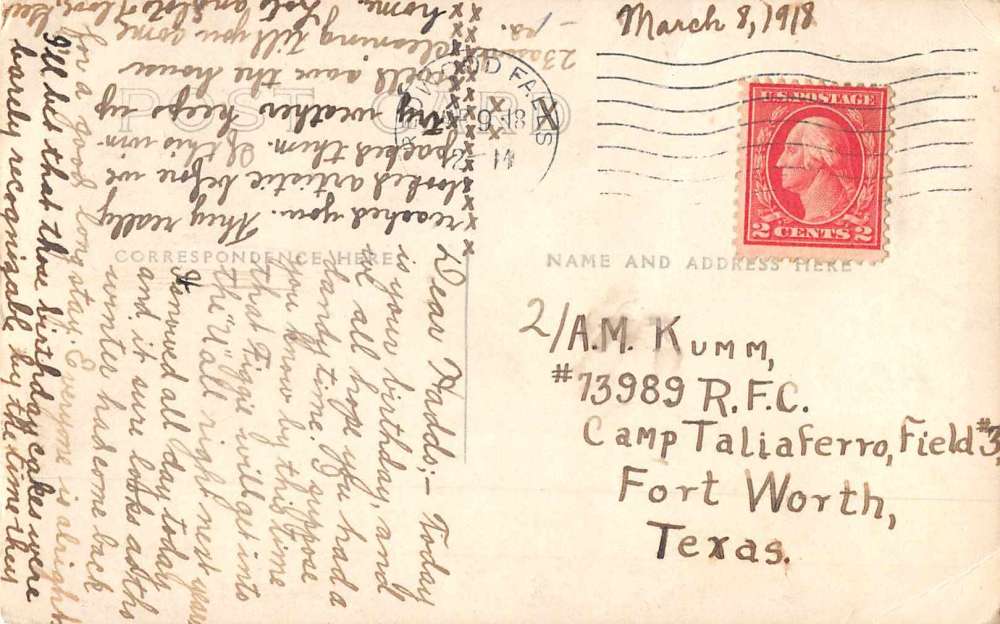 March 8, 1918
POST CARD
WOOD FALLS
9-18
14
U.S. POSTAGE
2 CENTS 2
CORRESPONDENCE HERE
NAME AND ADDRESS HERE
2/A.M. Kumm,
#73989 R.F.C.
Camp Taliaferro, Field #3,
Fort Worth,
Texas.
Dear Waddo;- Today
is your birthday, and
we all hope you had a
dandy time. I suppose
you know by this time
that Figgie will get into
the "U" all right next year
It snowed all day today
and it sure looks as tho
winter had come back
for a good long stay. Everyone is alright.
I'll bet that those birthday cakes were
barely recognizable by the time they
reached you. They really
looked artistic before we
packed them. If this win-
try weather keeps up
we'll save the house
cleaning till you come
home. Lots and lots of love,
xxxxxxxxxxxxxxxx
xxxxxxxxxxxxxxxx
xxx